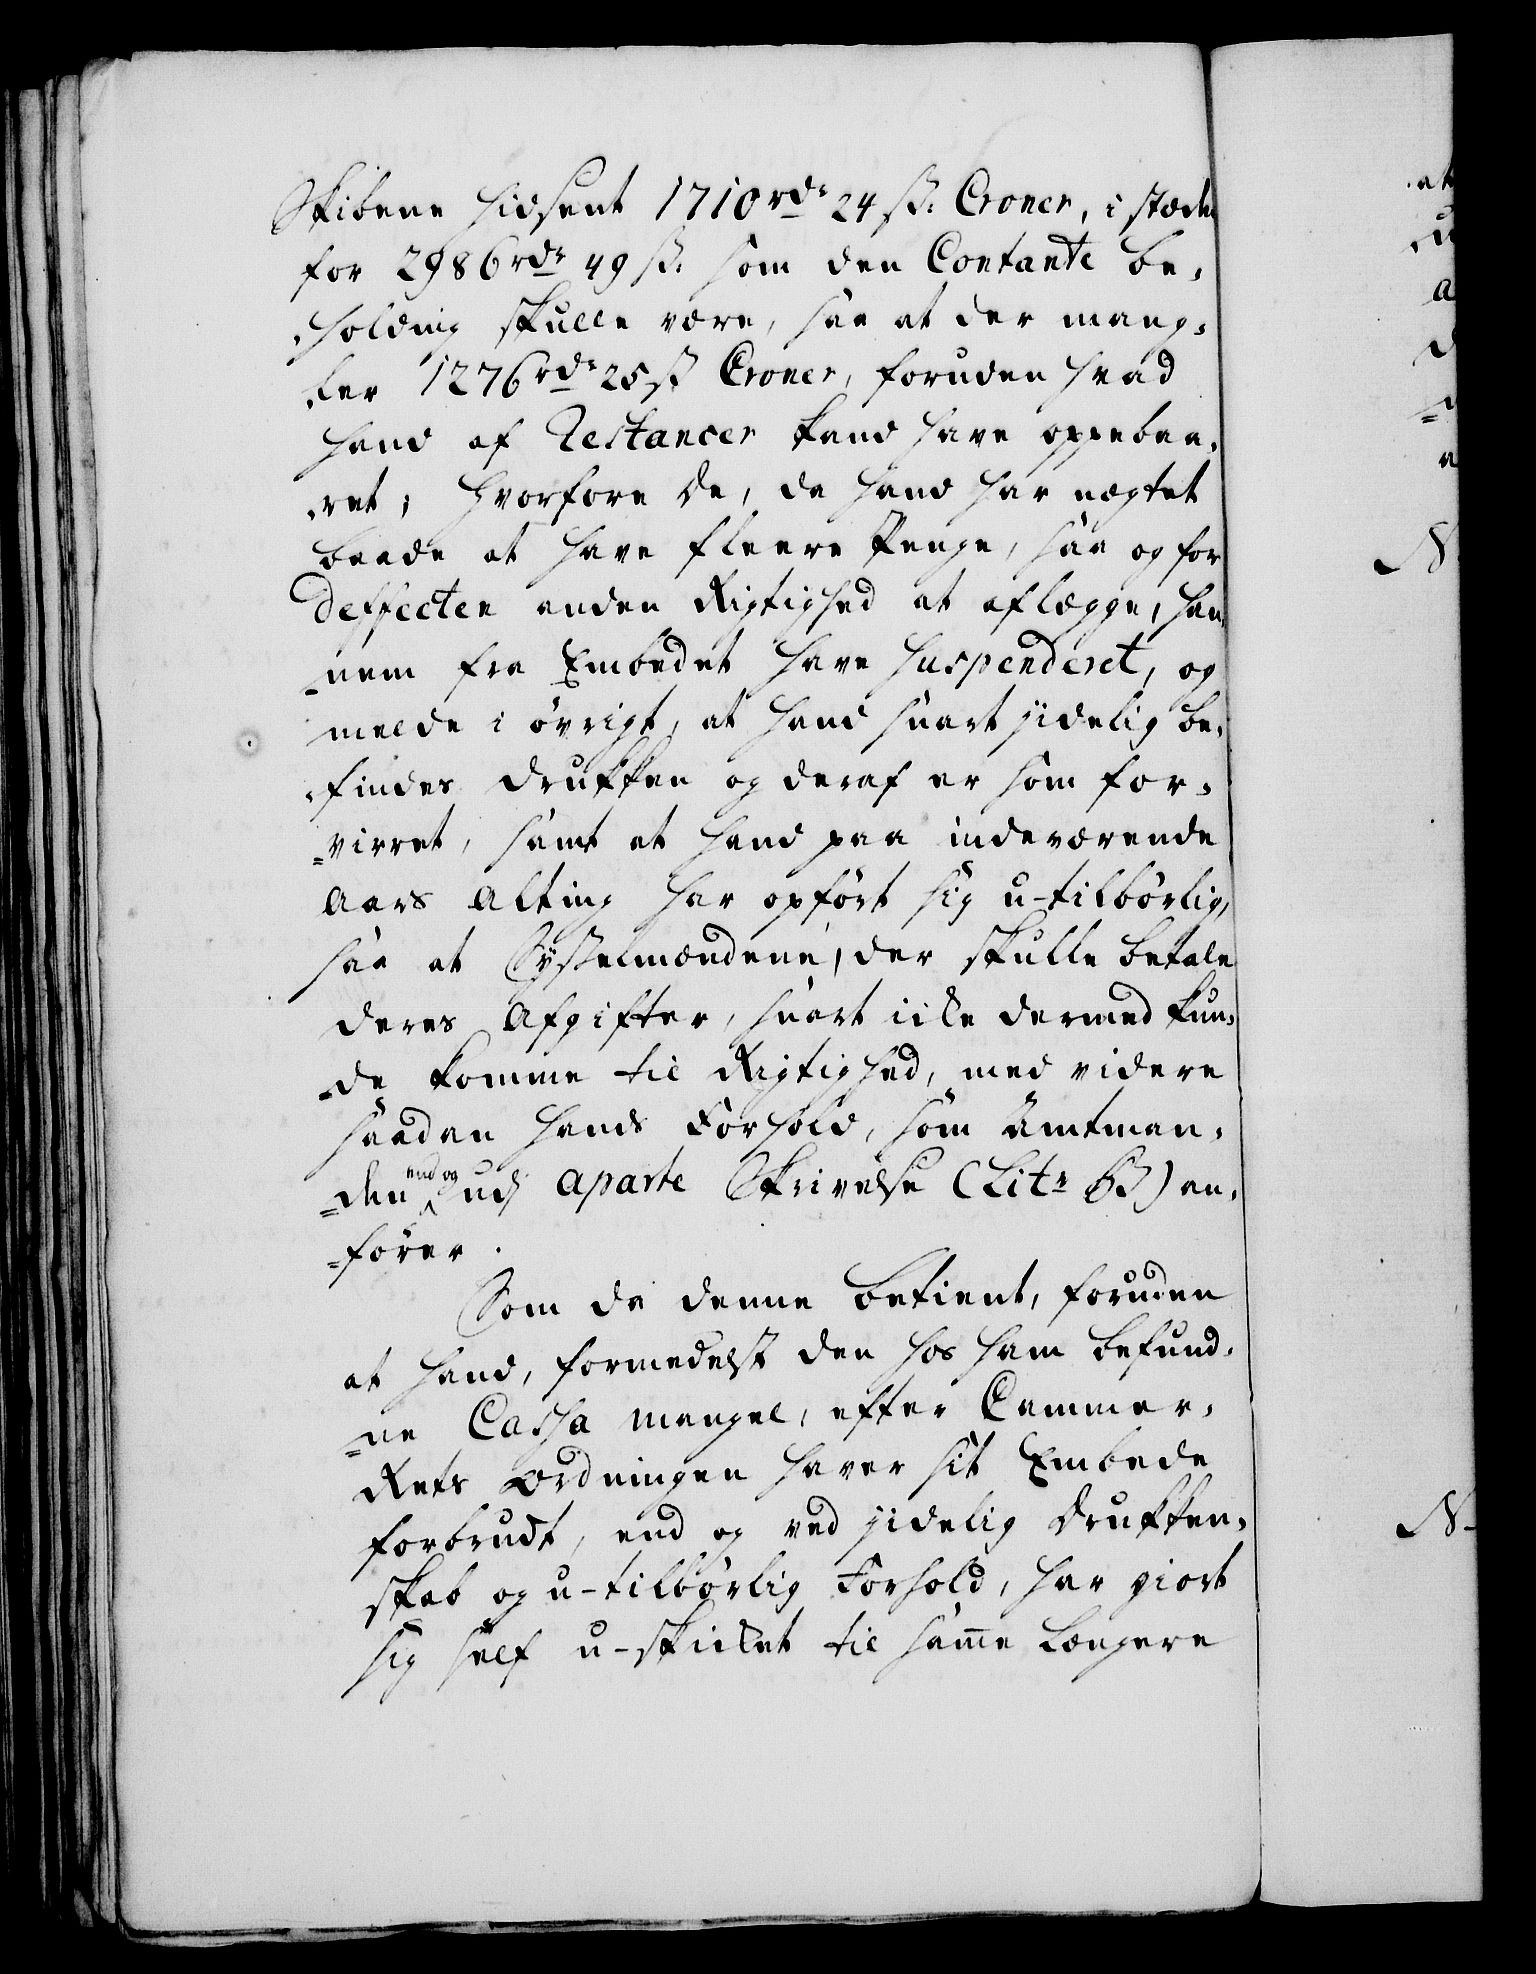 Skibene hidsent 1710 rdr 24 ß. Croner, i stæden
for 2986 rdr 49 ß. som den Contante be-
-holding skulle være, saa at der mang-
-ler 1276 rdr 25 ß Croner, foruden hvad
hand af Restancer kand have oppebaa-
-ret; hvorfore de, da hand har nægtet
baade at have fleere Penge, saa og for
Deffecten anden Rigtighed at aflægge, han-
-nem fra Embedet have suspenderet, og
melde i øvrigt, at hand snart jidelig be-
-findes drukken og deraf er som for-
-virret, samt at hand paa indeværende
Aars Alting har opført sig u-tilbørlig,
saa at Sysselmændene, der skulle betale
deres Afgifter, snart icke dermed kun-
-de komme til Rigtighed, med videre
saadan hands Forhold, som Amtman-
-den end og udj aparte Skrivelse (Litr B) an-
-fører.
Som da denne betient, foruden
at hand, formedelst den hos ham befund-
-ne Cassa mangel, efter Cammer-
Rets Ordningen haver sit Embede
forbrudt, end og ved jidelig drukken-
skab og u-tilbørlig Forhold, har giort
sig self u-skicket til same længere